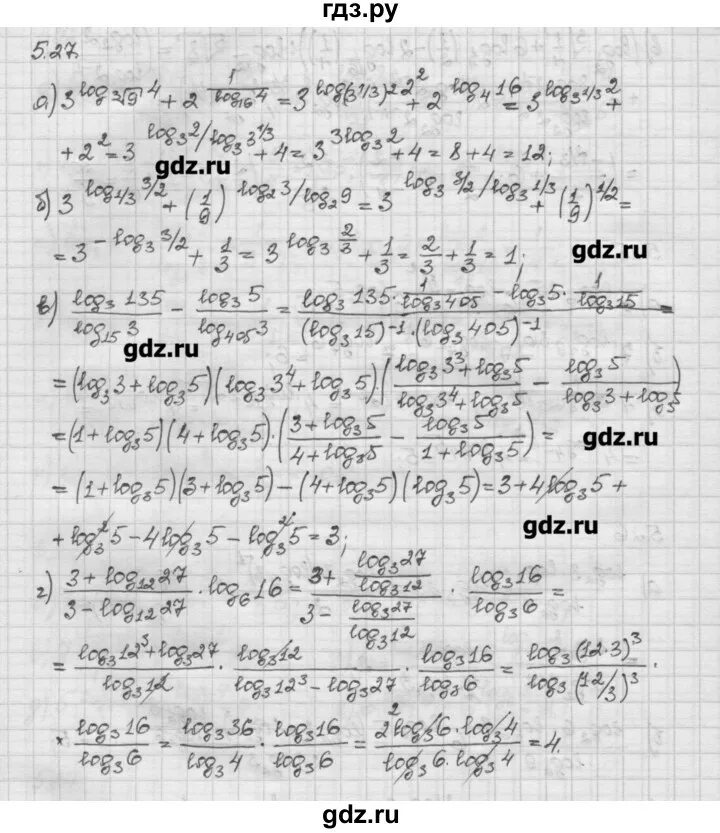 гдз.ру
5.27.
а) 3^(log_∛9 4) + 2^(1/log_16 4) = 3^(log_(3^1/3)^2 2^2) + 2^(log_4 16) = 3^(log_3^1/3 2) +
+ 2^2 = 3^(log_3 2/log_3 3^1/3) + 4 = 3^(3log_3 2) + 4 = 8 + 4 = 12;
gdz.ru
б) 3^(log_1/3 3/2) + (1/9)^(log_2 3/log_2 9) = 3^(log_3 3/2/log_3 1/3) + (1/9)^(1/2) =
= 3^(-log_3 3/2) + 1/3 = 3^(log_3 2/3) + 1/3 = 2/3 + 1/3 = 1;
gdz.ru
в) log_3 135/log_15 3 - log_3 5/log_405 3 = (log_3 135 · 1/log_3 405 - log_3 5 · 1/log_3 15)/((log_3 15)^-1 · (log_3 405)^-1) =
gdz.ru
= (log_3 3 + log_3 5)(log_3 3^4 + log_3 5) · ((log_3 3^3 + log_3 5)/(log_3 3^4 + log_3 5) - log_3 5/(log_3 3 + log_3 5))
= (1 + log_3 5)(4 + log_3 5) · ((3 + log_3 5)/(4 + log_3 5) - log_3 5/(1 + log_3 5)) =
gdz.ru
= (1 + log_3 5)(3 + log_3 5) - (4 + log_3 5)(log_3 5) = 3 + 4log_3 5 +
+ log_3^2 5 - 4log_3 5 - log_3^2 5 = 3;
gdz.ru
г) (3 + log_12 27)/(3 - log_12 27) · log_6 16 = (3 + log_3 27/log_3 12)/(3 - log_3 27/log_3 12) · log_3 16/log_3 6 =
= (log_3 12^3 + log_3 27)/log_3 12 · log_3 12/(log_3 12^3 - log_3 27) · log_3 16/log_3 6 = log_3 (12·3)^3/log_3 (12/3)^3 ·
· log_3 16/log_3 6 = log_3 36/log_3 4 · log_3 16/log_3 6 = (2 log_3 6 · 2 log_3 4)/(log_3 6 · log_3 4) = 4.
gdz.ru
gdz.ru